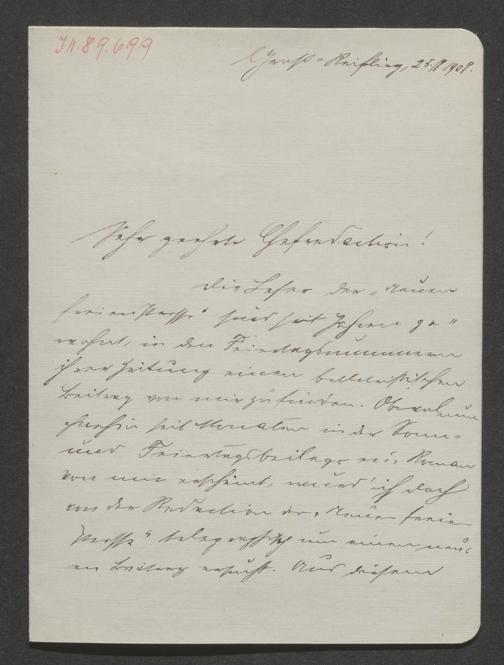 J.N. 89.699
Groß-Reifling, 25.11.1908.
Sehr geehrte Chefredaction!
Die Leser der „Neuen
freien Presse" sind seit Jahren ge-
wohnt, in den Feiertagsnummern
ihrer Zeitung einen belletristischen
Beitrag von mir zu finden. Obwol nun
ohnehin seit Monaten in der Sonn-
und Feiertagsbeilage ein Roman
von mir erscheint, wurde ich doch
von der Redaction der „Neuen freien
Presse" telegraphisch um einen neu-
en Beitrag ersucht. Aus diesem